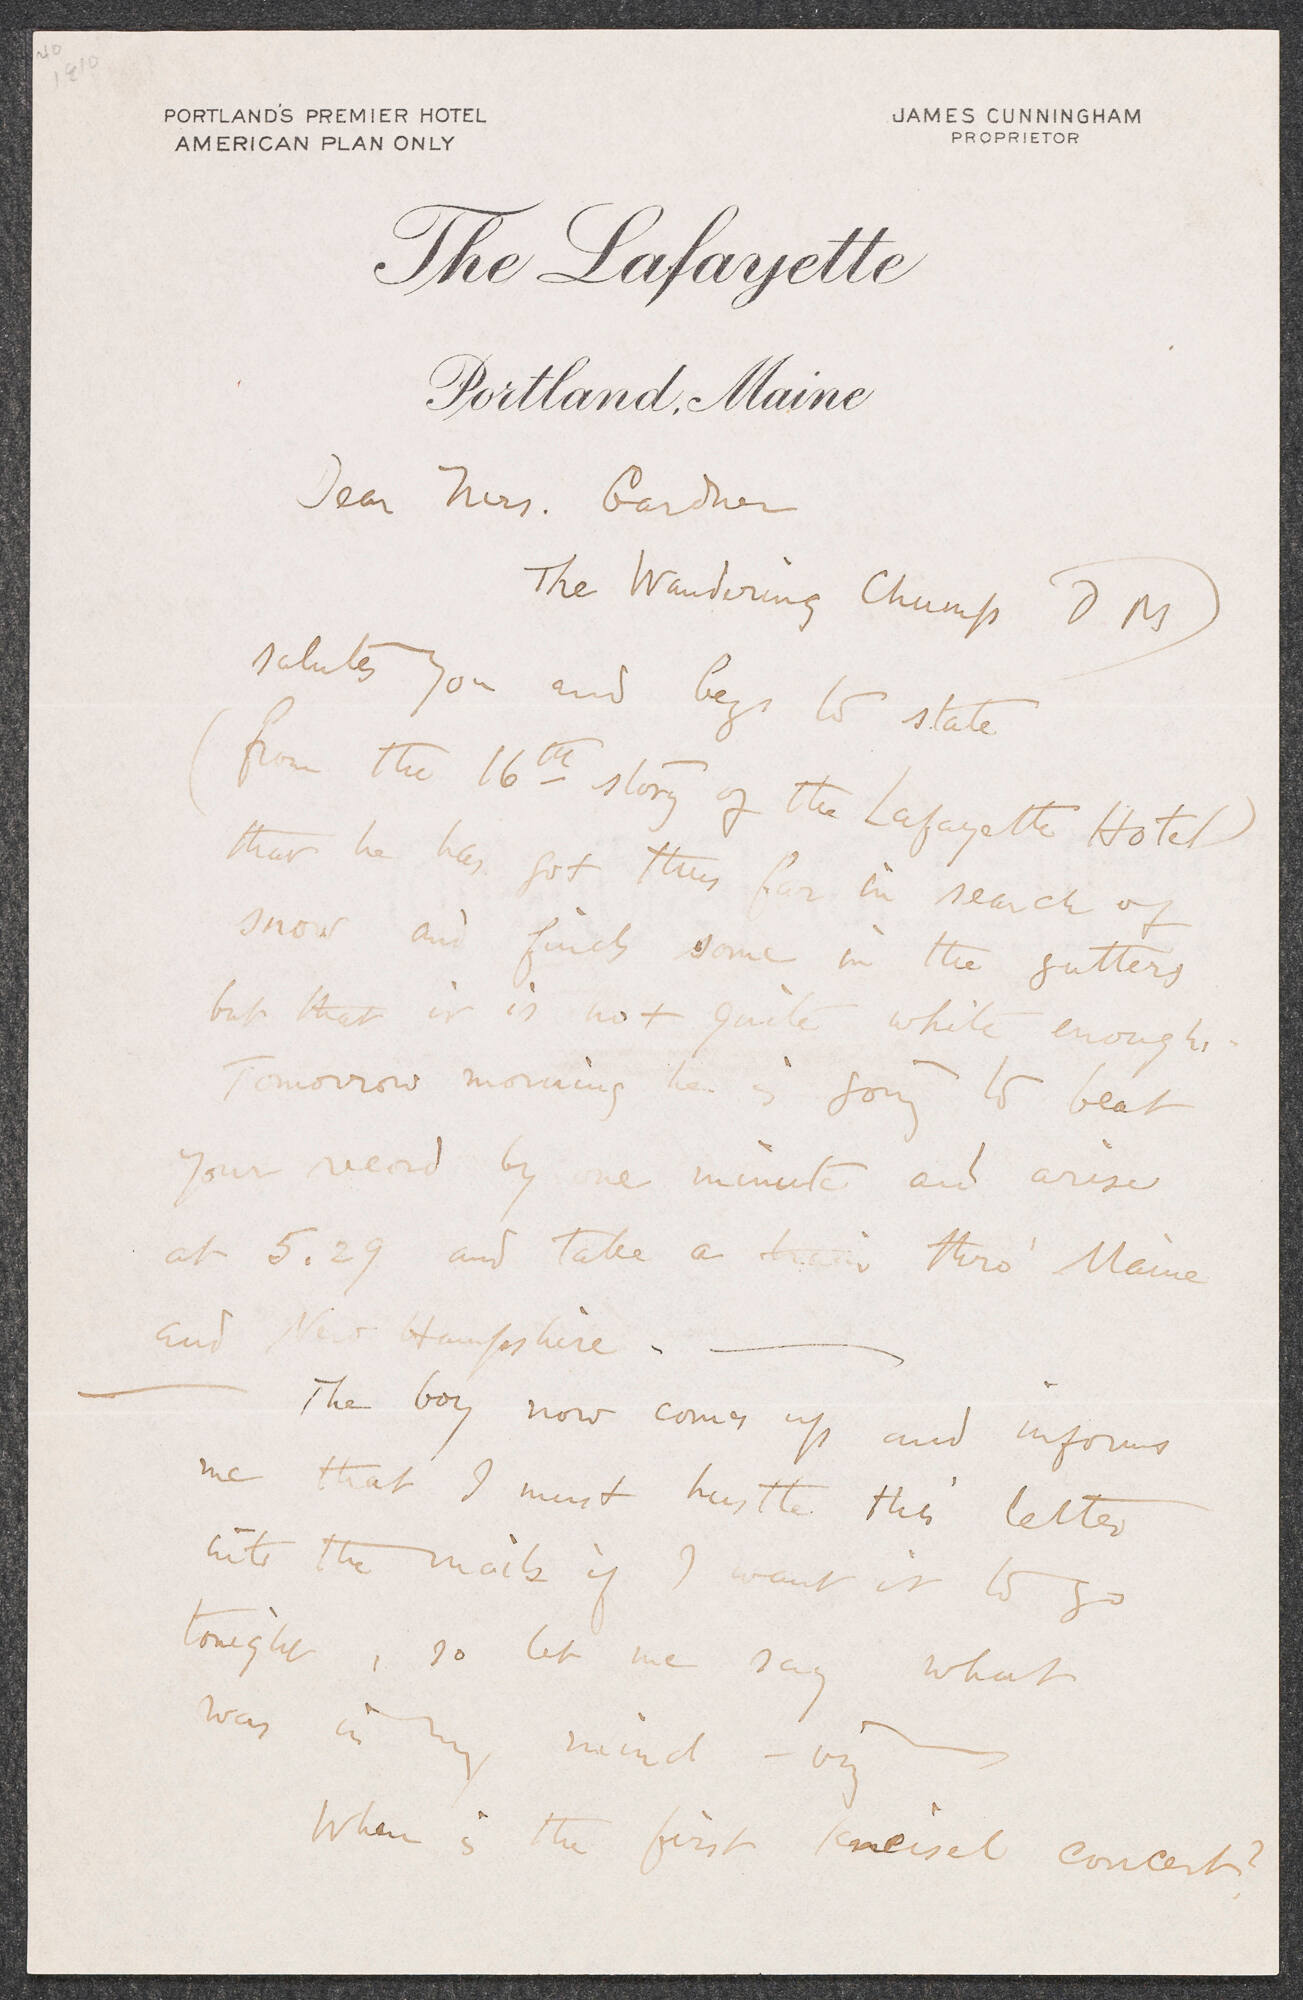 1910
PORTLAND'S PREMIER HOTEL
AMERICAN PLAN ONLY
JAMES CUNNINGHAM
PROPRIETOR
The Lafayette
Portland, Maine
Dear Mrs. Gardner
The Wandering Chump
salutes you and begs to state
(from the 16th story of the Lafayette Hotel)
that he has got thus far in search of
snow and finds some in the gutters
but that it is not quite white enough.
Tomorrow morning he is going to beat
your record by one minute and arise
at 5.29 and take a train thro' Maine
and New Hampshire.
The boy now comes up and informs
me that I must hustle this letter
into the mails if I want it to go
tonight, so let me say what
was in my mind - viz
When is the first Kneisel concert?